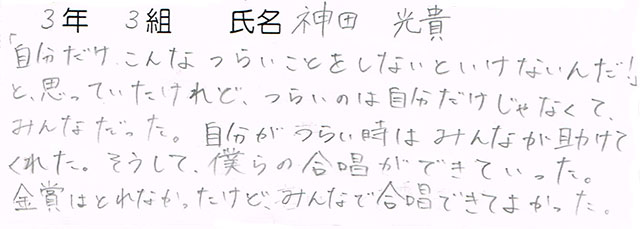 3年 3組 氏名 神田 光貴
「自分だけ、こんなつらいことをしないといけないんだ!」
と、思っていたけれど、つらいのは自分だけじゃなくて、
みんなだった。自分がつらい時はみんなが助けて
くれた。そうして、僕らの合唱ができていった。
金賞はとれなかったけど、みんなで合唱できてよかった。